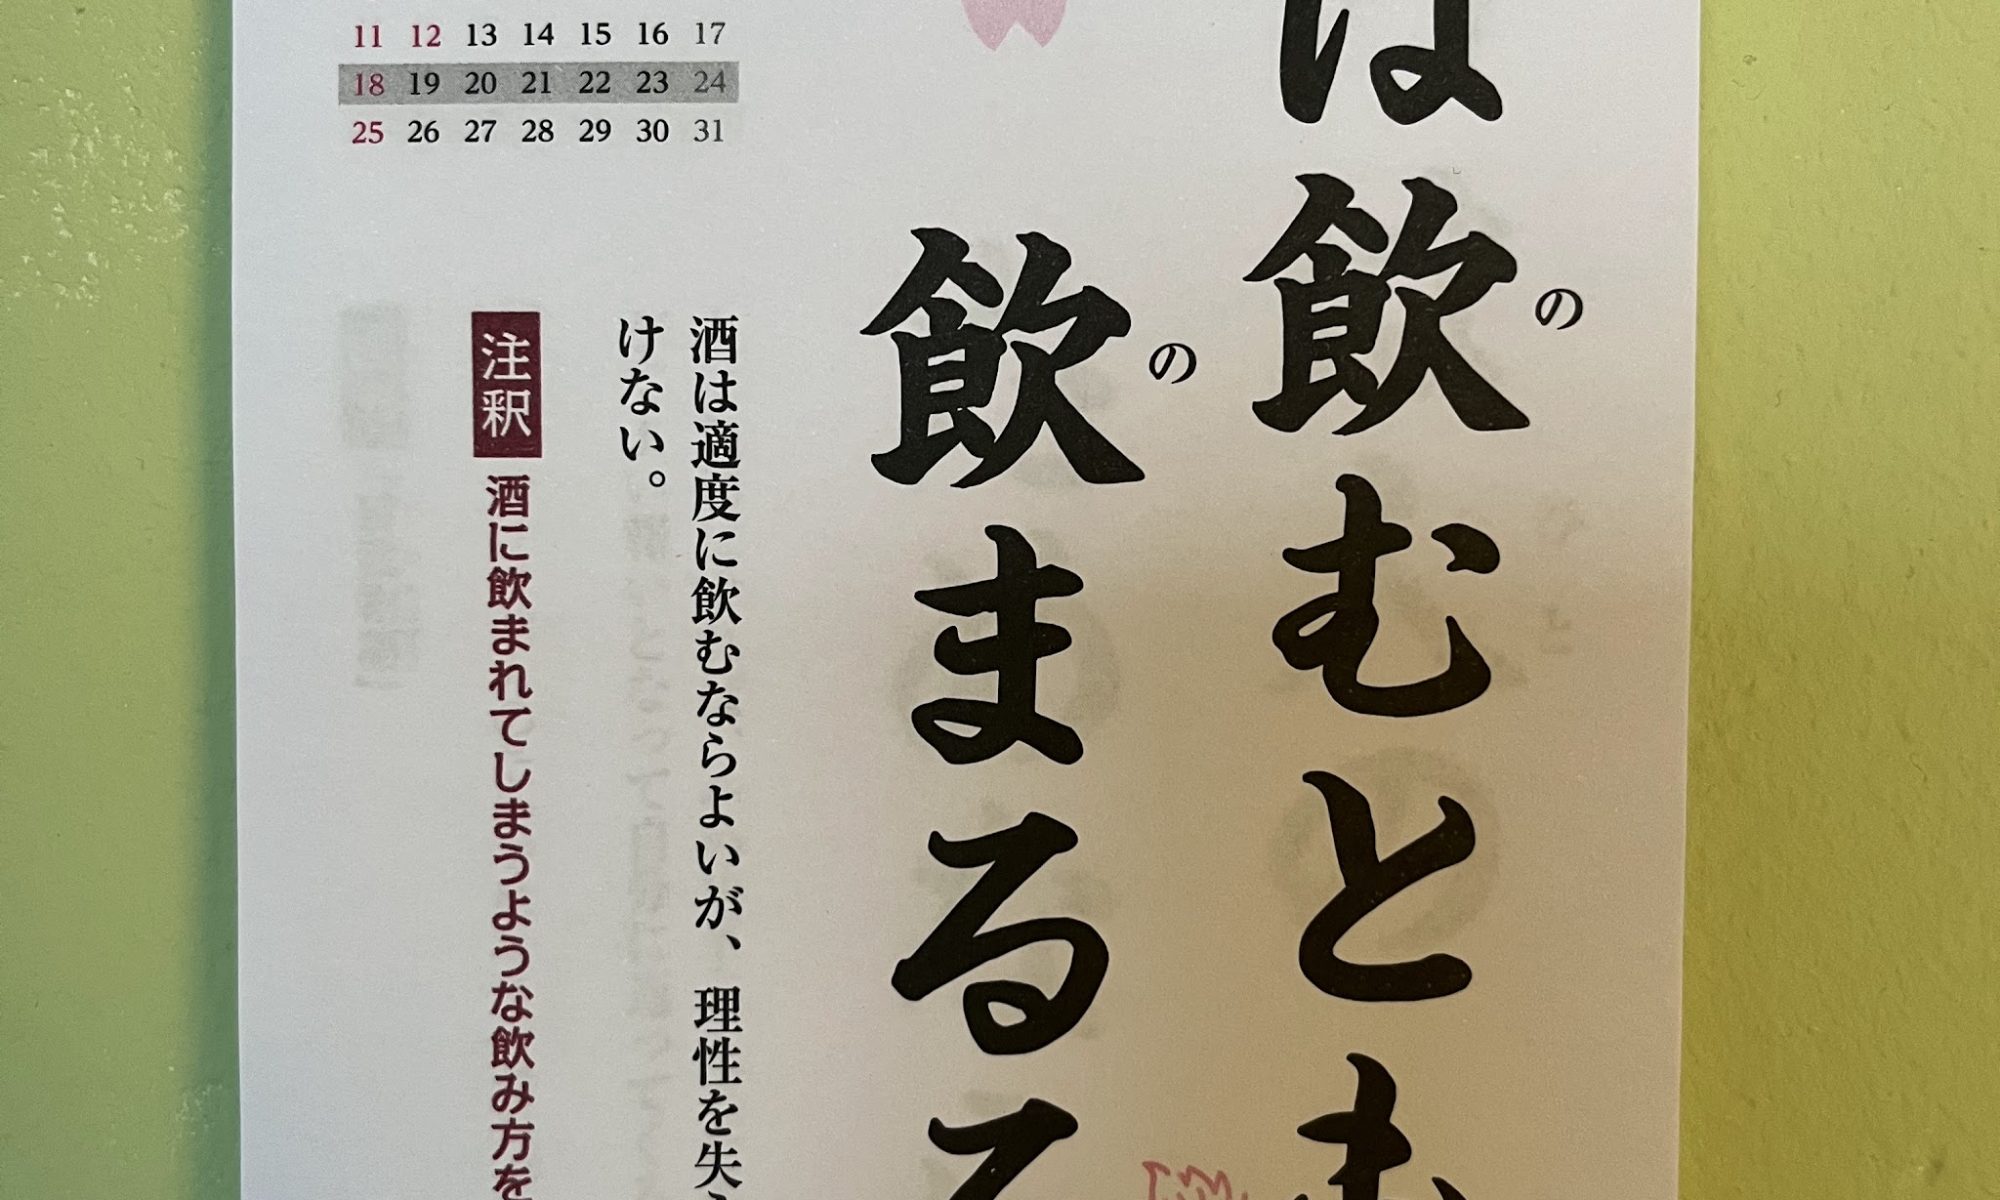 11 12 13 14 15 16 17
18 19 20 21 22 23 24
25 26 27 28 29 30 31
は飲むとも
飲まるる
の
の
酒は適度に飲むならよいが、理性を失
けない。
注釈
酒に飲まれてしまうような飲み方を